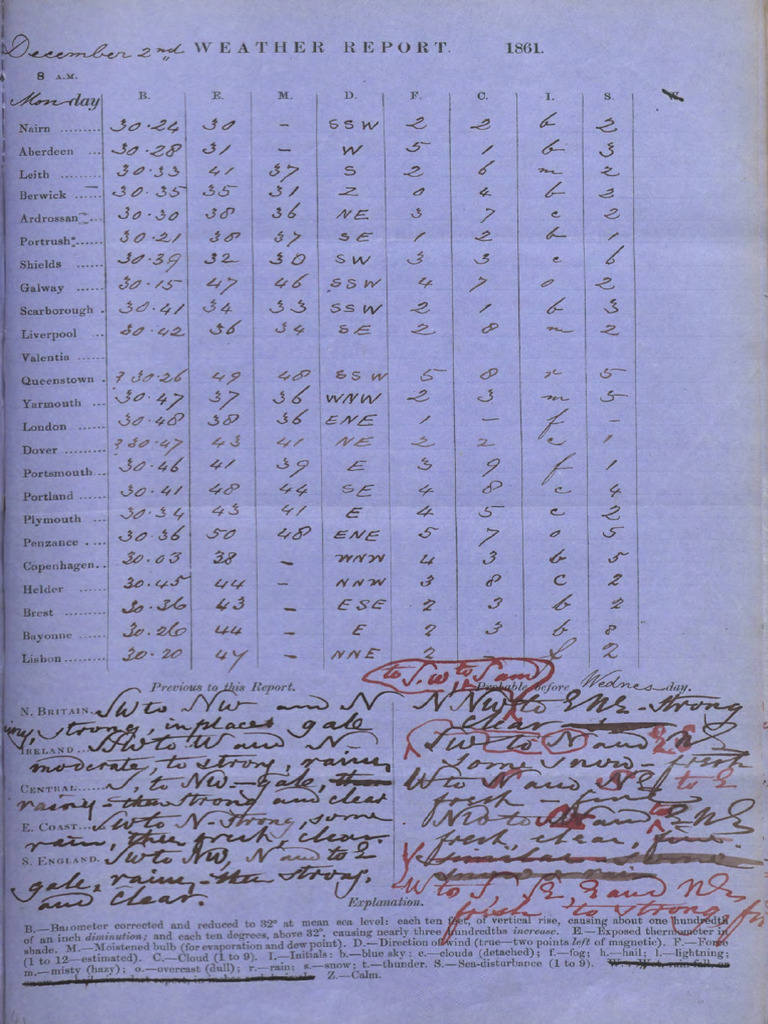 December 2nd WEATHER REPORT. 1861.
8 A.M.
Monday B. E. M. D. F. C. I. S.
Nairn 30.24 30 - SSW 2 2 b 2
Aberdeen 30.28 31 - W 5 1 b 3
Leith 30.33 41 37 S 2 6 m 2
Berwick 30.35 35 31 Z 0 4 b 2
Ardrossan 30.30 38 36 NE 3 7 c 2
Portrush 30.21 38 37 SE 1 2 b 1
Shields 30.39 32 30 SW 3 3 c 6
Galway 30.15 47 46 SSW 4 7 o 2
Scarborough 30.41 34 33 SSW 2 1 b 3
Liverpool 30.42 36 34 SE 2 8 m 2
Valentia
Queenstown ? 30.26 49 48 SSW 5 8 r 5
Yarmouth 30.47 37 36 WNW 2 3 m 5
London 30.48 38 36 ENE 1 - f -
Dover ? 30.47 43 41 NE 2 2 c 1
Portsmouth 30.46 41 39 E 3 9 f 1
Portland 30.41 48 44 SE 4 8 c 4
Plymouth 30.34 43 41 E 4 5 c 2
Penzance 30.36 50 48 ENE 5 7 o 5
Copenhagen 30.03 38 - WNW 4 3 b 5
Helder 30.45 44 - NNW 3 8 c 2
Brest 30.36 43 - ESE 2 3 b 2
Bayonne 30.26 44 - E 2 3 b 8
Lisbon 30.20 47 - NNE 2 - 2
to S.W to S and
Previous to this Report. Probable before Wednesday.
N. BRITAIN. SW to NW and N N NW to ENE - strong
strong, in places gale clear
IRELAND SW to W and N - SW to N and
moderate, to strong, rainy some snow - fresh
CENTRAL S, to NW - gale, W to N and NE to E
rainy - then strong and clear fresh - 
E. COAST SW to N - strong, some N and ENE
rain, then fresh, clear. fresh, clear, fine.
S. ENGLAND. SW to NW, N and to E similar some
gale, rainy - then strong, W to S, SE, E and NE
and clear. fresh to strong
Explanation.
B.—Barometer corrected and reduced to 32° at mean sea level: each ten feet, of vertical rise, causing about one hundredth
of an inch diminution; and each ten degrees, above 32°, causing nearly three hundredths increase. E.—Exposed thermometer in
shade. M.—Moistened bulb (for evaporation and dew point). D.—Direction of wind (true—two points left of magnetic). F.—Force
(1 to 12—estimated). C.—Cloud (1 to 9). I.—Initials: b.—blue sky; c.—clouds (detached); f.—fog; h.—hail; l.—lightning;
m.—misty (hazy); o.—overcast (dull); r.—rain; s.—snow; t.—thunder. S.—Sea-disturbance (1 to 9).
Z.—Calm.